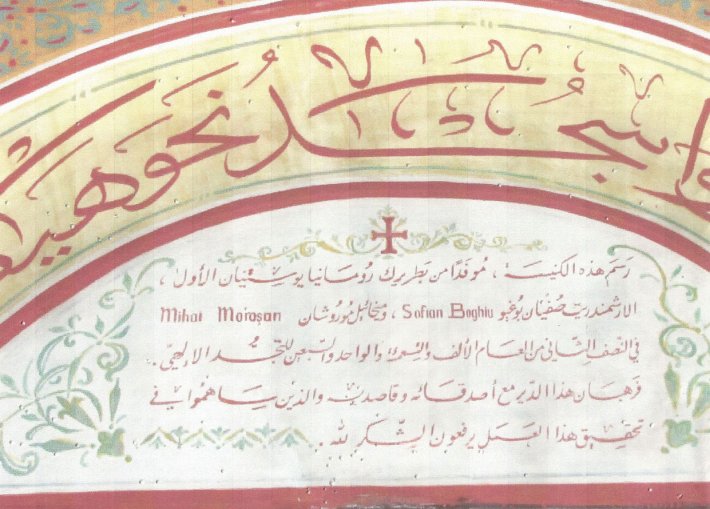 واسجد نحو هيكل
رسم هذه الكنيسة ، مُوفدًا من بطريرك رُومانيا يوستنيان الأول ،
الارشمندريت صُفيان بُوغيو Sofian Boghiu ، وميخائيل مُورُوشان Mihai Moroşan
في النّصف الثّاني من العام الألف والتسعمائة والواحد والسّبعين للتجسُّد الإلهيّ .
فرهبان هذا الدّير مع أصدقائه وقاصديه والذين ساهمُوا في
تحقيق هذا العمل يرفعون الشّكر لله .